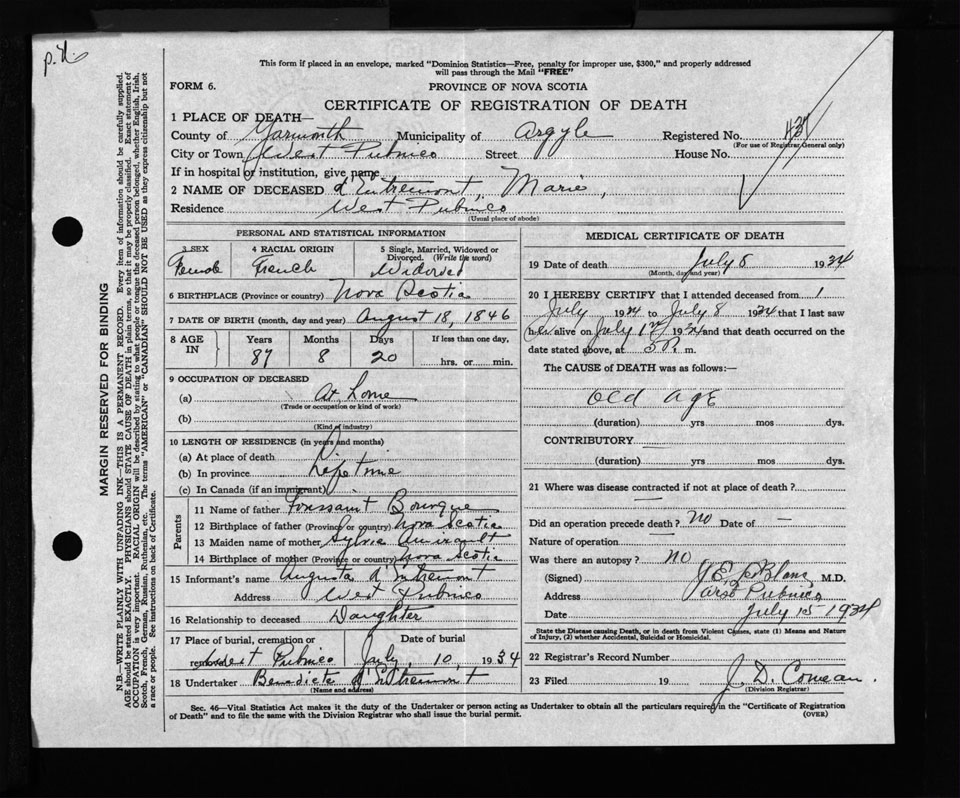 p.
This form if placed in an envelope, marked "Dominion Statistics—Free, penalty for improper use, $300," and properly addressed
will pass through the Mail "FREE"
FORM 6.
PROVINCE OF NOVA SCOTIA
CERTIFICATE OF REGISTRATION OF DEATH
1 PLACE OF DEATH—
County of Yarmouth Municipality of Argyle Registered No. 437
(For use of Registrar General only)
City or Town West Pubnico Street House No.
If in hospital or institution, give name
2 NAME OF DECEASED d'Entremont, Marie,
Residence West Pubnico
(Usual place of abode)
PERSONAL AND STATISTICAL INFORMATION
3 SEX 4 RACIAL ORIGIN 5 Single, Married, Widowed or
Divorced. (Write the word)
Female French Widowed
6 BIRTHPLACE (Province or country) Nova Scotia
7 DATE OF BIRTH (month, day and year) August 18, 1846
8 AGE IN Years Months Days If less than one day,
87 8 20 hrs. or min.
9 OCCUPATION OF DECEASED
(a) At Home
(Trade or occupation or kind of work)
(b)
(Kind of industry)
10 LENGTH OF RESIDENCE (in years and months)
(a) At place of death
(b) In province Life time
(c) In Canada (if an immigrant)
Parents
11 Name of father Toussaint Bourque
12 Birthplace of father (Province or country) Nova Scotia
13 Maiden name of mother Sylvie Amirault
14 Birthplace of mother (Province or country) Nova Scotia
15 Informant's name Augusta d'Entremont
Address West Pubnico
16 Relationship to deceased Daughter
17 Place of burial, cremation or Date of burial
removal West Pubnico July, 10, 1934
18 Undertaker Benedict d'Entremont
(Name and address)
MEDICAL CERTIFICATE OF DEATH
19 Date of death July 8 1934
(Month, day and year)
20 I HEREBY CERTIFY that I attended deceased from 1
July 1934 to July 8 1934 that I last saw
her alive on July 1934 and that death occurred on
date stated above, at 5 P. m.
The CAUSE of DEATH was as follows:—
Old Age
(duration) yrs mos dys.
CONTRIBUTORY
(duration) yrs mos dys.
21 Where was disease contracted if not at place of death?
—
Did an operation precede death? No Date of —
Nature of operation —
Was there an autopsy? NO
(Signed) J E LeBlanc M.D.
Address West Pubnico
Date July 15 1934
State the Disease causing Death, or in death from Violent Causes, state (1) Means and Nature
of Injury, (2) whether Accidental, Suicidal or Homicidal.
22 Registrar's Record Number
23 Filed 19 J. D. Comeau.
(Division Registrar)
Sec. 46—Vital Statistics Act makes it the duty of the Undertaker or person acting as Undertaker to obtain all the particulars required in the "Certificate of Registration
of Death" and to file the same with the Division Registrar who shall issue the burial permit. (OVER)
MARGIN RESERVED FOR BINDING
N.B.—WRITE PLAINLY WITH UNFADING INK—THIS IS A PERMANENT RECORD. Every item of information should be carefully supplied.
AGE should be stated EXACTLY. PHYSICIANS should STATE CAUSE OF DEATH in plain terms, so that it may be properly classified. Exact statement of
OCCUPATION is very important. RACIAL ORIGIN will be described by stating to what people or tongue the deceased person belonged, whether English, Irish,
Scotch, French, German, Russian, Ruthenian, etc. The terms "AMERICAN" or "CANADIAN" SHOULD NOT BE USED as they express citizenship but not
a race or people. See instructions on back of Certificate.